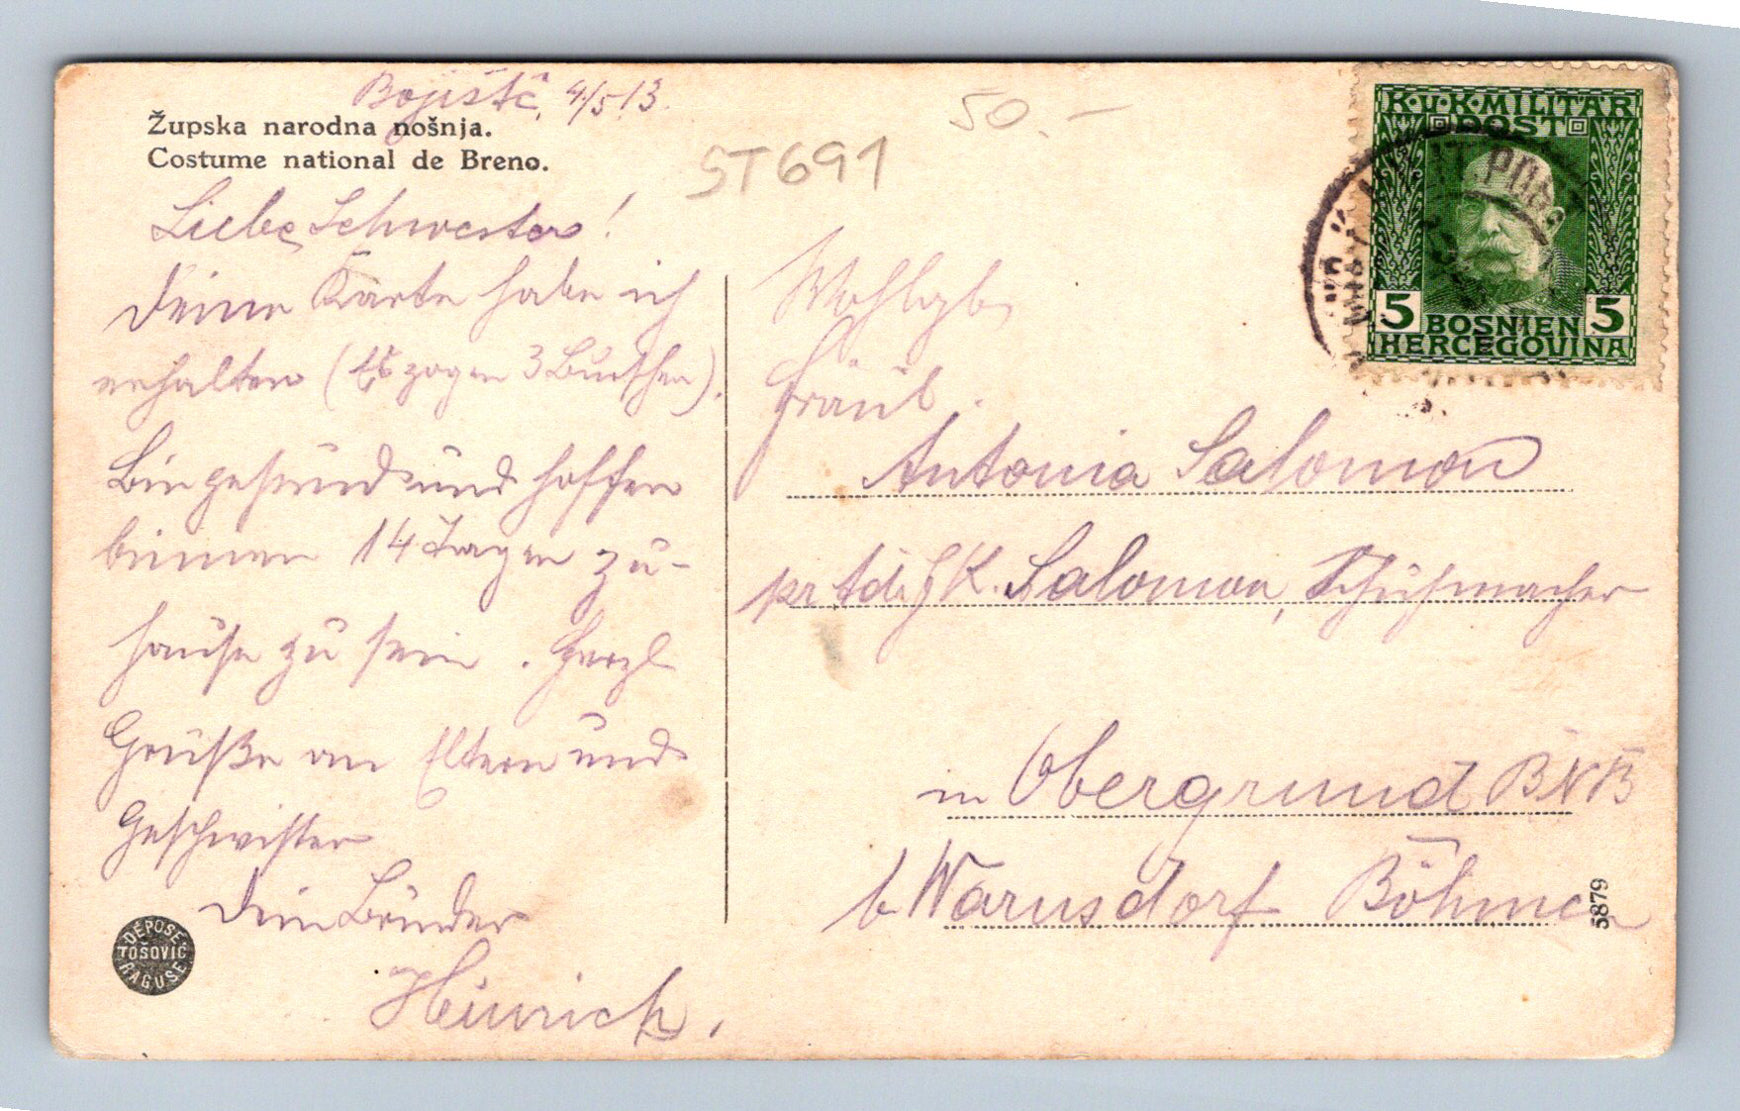 Bojistč, 4/5 13.
Župska narodna nošnja.
Costume national de Breno.
50.-
ST691
Liebe Schwester!
Deine Karte habe ich
erhalten (Es zogen 3 Burschen).
Bin gesund und hoffen
binnen 14 Tagen zu-
hause zu sein. Herzl
Grüße an Eltern und
Geschwister
Dein Bruder
Heinrich.
DÉPOSÉ
TOŠOVIĆ
RAGUSE
K.u.K. MILITÄR
POST
5 BOSNIEN 5
HERCEGOVINA
Wohlgb
Fräul.
Antonia Salomon
K. Salomon, Schuhmacher
in Obergrund BNB
b Warnsdorf Böhmen
5879